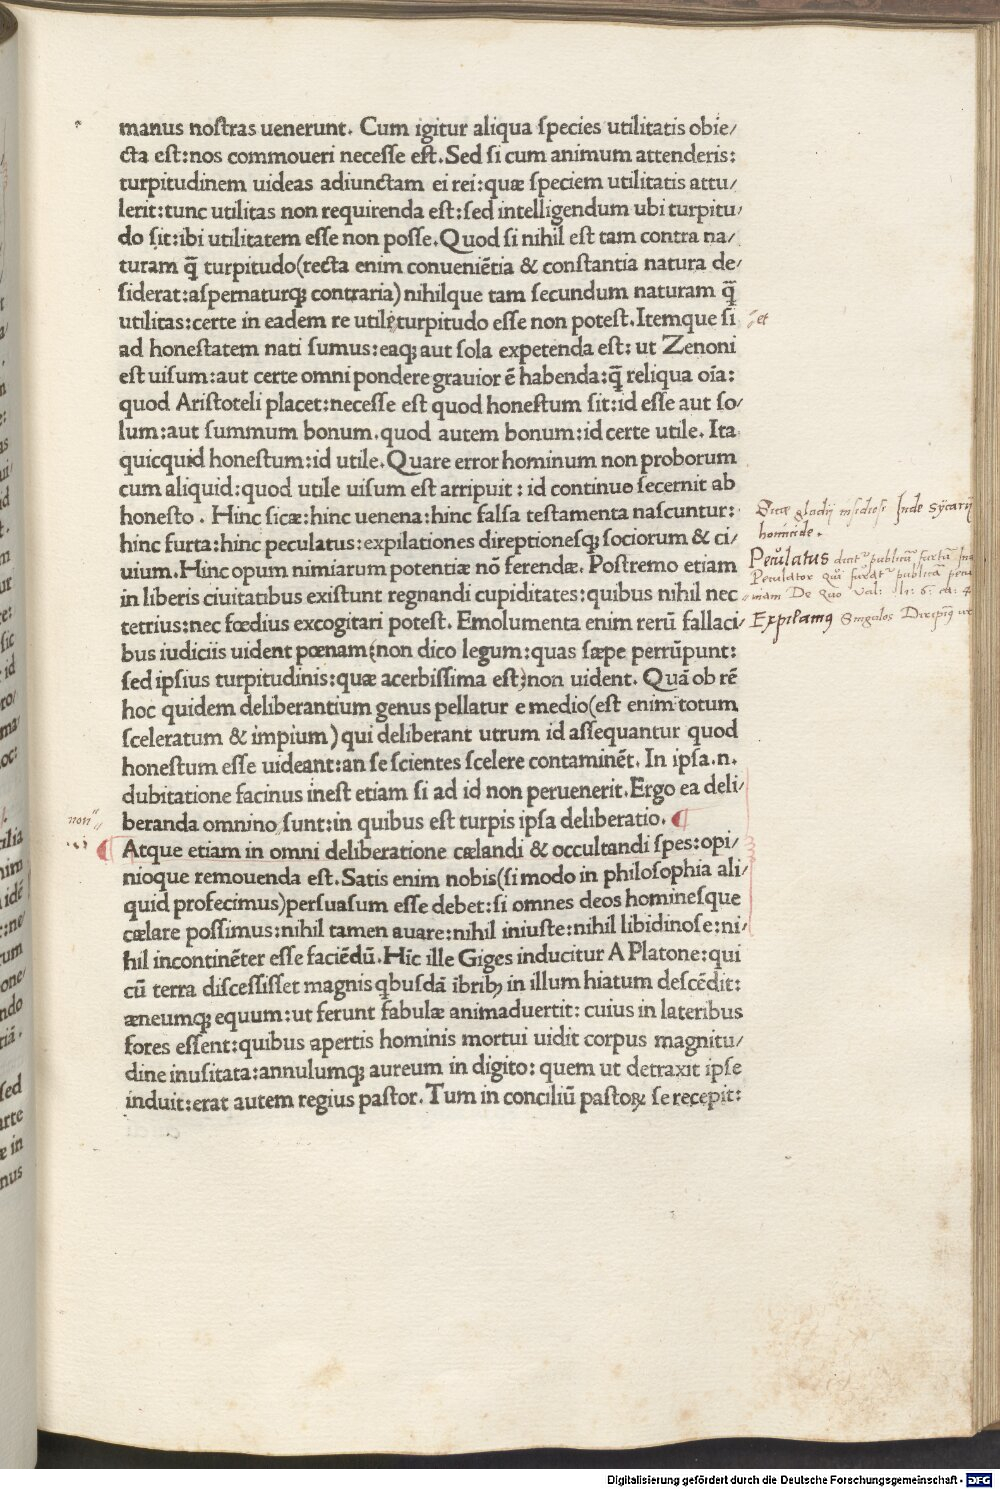 manus nostras uenerunt. Cum igitur aliqua species utilitatis obie/
cta est:nos commoueri necesse est. Sed si cum animum attenderis:
turpitudinem uideas adiunctam ei rei:quæ speciem utilitatis attu/
lerit:tunc utilitas non requirenda est:sed intelligendum ubi turpitu/
do sit:ibi utilitatem esse non posse. Quod si nihil est tam contra na/
turam q̄ turpitudo(recta enim conueniētia & constantia natura de/
siderat:aspernaturq; contraria) nihilque tam secundum naturam q̄
utilitas:certe in eadem re utile turpitudo esse non potest. Itemque si
et
ad honestatem nati sumus:eaq; aut sola expetenda est: ut Zenoni
est uisum:aut certe omni pondere grauior ē habenda:q̄ reliqua oīa:
quod Aristoteli placet:necesse est quod honestum sit:id esse aut so/
lum:aut summum bonum. quod autem bonum:id certe utile. Ita
quicquid honestum:id utile. Quare error hominum non proborum
cum aliquid:quod utile uisum est arripuit: id continuo secernit ab
honesto. Hinc sicæ:hinc uenena:hinc falsa testamenta nascuntur:
hinc furta:hinc peculatus:expilationes direptionesq; sociorum & ci/
uium. Hinc opum nimiarum potentiæ nō ferendæ. Postremo etiam
in liberis ciuitatibus existunt regnandi cupiditates:quibus nihil nec
tetrius:nec fœdius excogitari potest. Emolumenta enim rerū fallaci/
bus iudiciis uident pœnam(non dico legum:quas sæpe perrūpunt:
sed ipsius turpitudinis:quæ acerbissima est)non uident. Quā ob rē
hoc quidem deliberantium genus pellatur e medio(est enim totum
sceleratum & impium) qui deliberant utrum id assequantur quod
honestum esse uideant:an se scientes scelere contaminēt. In ipsa.n.
dubitatione facinus inest etiam si ad id non peruenerit. Ergo ea deli/
beranda omnino sunt:in quibus est turpis ipsa deliberatio.
non
Atque etiam in omni deliberatione cælandi & occultandi spes:opi/
nioque remouenda est. Satis enim nobis(si modo in philosophia ali/
quid profecimus)persuasum esse debet:si omnes deos hominesque
cælare possimus:nihil tamen auare:nihil iniuste:nihil libidinose:ni/
hil incontinēter esse faciēdū. Hic ille Giges inducitur A Platone:qui
cū terra discessisset magnis qbusdā ībrib; in illum hiatum descēdit:
æneumq; equum:ut ferunt fabulæ animaduertit: cuius in lateribus
fores essent:quibus apertis hominis mortui uidit corpus magnitu/
dine inusitata:annulumq; aureum in digito: quem ut detraxit ipse
induit:erat autem regius pastor. Tum in conciliū pastoꝝ se recepit:
gladij insidiosi Inde Sycarij
homicide.
Peculatus
Peculator
De quo Val:
Expilamus Singulos
Digitalisierung gefördert durch die Deutsche Forschungsgemeinschaft - DFG